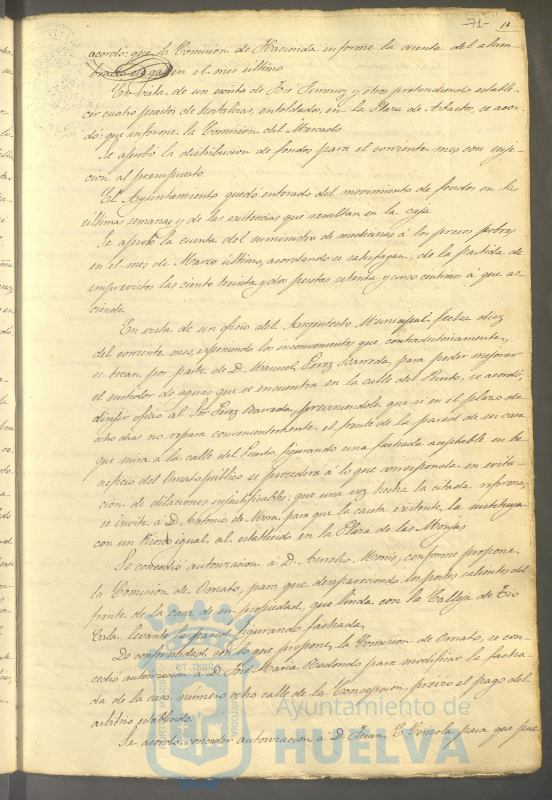 -71- 18
acordó: que la Comisión de Hacienda informe la cuenta del alum-
brado de gas en el mes último
En vista de un escrito de José Jimenez y otros pretendiendo estable-
cer cuatro puestos de hortalizas, entoldados, en la Plaza de Abastos, se acor-
dó: que informe la Comisión del Mercado.
Se aprobó la distribución de fondos para el corriente mes con suje-
ción al presupuesto.
El Ayuntamiento quedó enterado del movimiento de fondos en las
últimas semanas y de las existencias que resultan en la caja.
Se aprobó la cuenta del suministro de medicinas á los presos pobres
en el mes de Marzo último, acordando se satisfagan, de la partida de
imprevistos las ciento treinta y dos pesetas setenta y cinco centimos á que as-
ciende.
En vista de un oficio del Arquitecto Municipal, fecha diez
del corriente mes, exponiendo los inconvenientes que, contradictoriamente,
se tocan, por parte de D. Manuel Perez Barreda, para poder mejorar
el surtidor de aguas que se encuentra en la calle del Puerto, se acordó:
dirigir oficio al Sor Perez Barreda, previniendole que si en el plazo de
ocho dias no repara convenientemente el frente de la pared de su casa
que mira á la calle del Puerto, figurando una fachada aceptable en be-
neficio del Ornato público se procederá á lo que corresponda en evita-
ción de dilaciones injustificables; que una vez hecha la citada reforma,
se invite á D. Antonio de Mora, para que la caseta existente, la sustituya
con un Kiosko igual, al establecido en la Plaza de las Monjas
Se concedió autorización á D. Aurelio Monis, conforme propone
la Comisión de Ornato, para que desapareciendo los postes salientes del
frente de la casa de su propiedad, que linda con la Calleja de Tio
Cala, levante la pared figurando fachada.
De conformidad con lo que propone la Comisión de Ornato, se con-
cedió autorización á D. José Maria Redondo para modificar la facha-
da de la casa número ocho calle de la Concepción, previo el pago del
arbitrio establecido.
Se acordó conceder autorización á D. Juan para que pue-
Ayuntamiento de
HUELVA